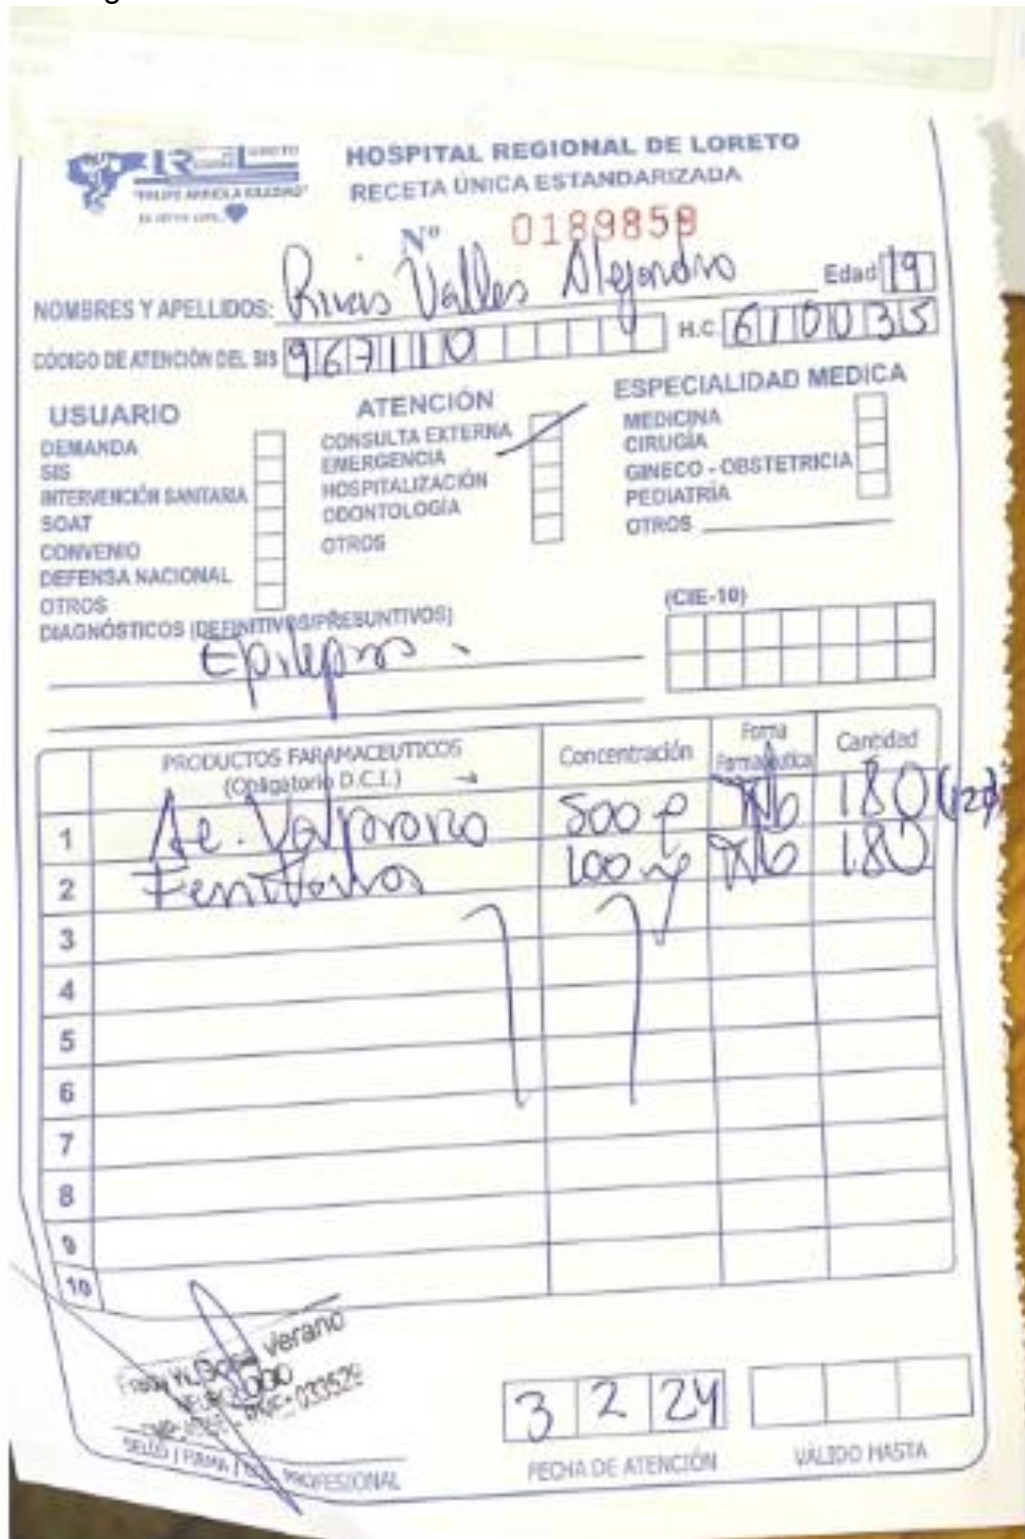 HOSPITAL REGIONAL DE LORETO
RECETA ÚNICA ESTANDARIZADA
Nº 0189858
NOMBRES Y APELLIDOS: Valles Alejandro Edad 19
CÓDIGO DE ATENCIÓN DEL SIS 967110 H.C. 6110035
USUARIO
DEMANDA
SIS
INTERVENCIÓN SANITARIA
SOAT
CONVENIO
DEFENSA NACIONAL
OTROS
ATENCIÓN
CONSULTA EXTERNA
EMERGENCIA
HOSPITALIZACIÓN
ODONTOLOGÍA
OTROS
ESPECIALIDAD MEDICA
MEDICINA
CIRUGÍA
GINECO - OBSTETRICIA
PEDIATRÍA
OTROS
DIAGNÓSTICOS (DEFINITIVOS/PRESUNTIVOS) (CIE-10)
PRODUCTOS FARAMACEUTICOS
(Obligatorio D.C.I.)
Concentración
Forma
Farmaceutica
Cantidad
1 500 180
2 100 180
3
4
5
6
7
8
9
10
Verano
033529
3 2 24
SELLO | FIRMA PROFESIONAL FECHA DE ATENCIÓN VÁLIDO HASTA